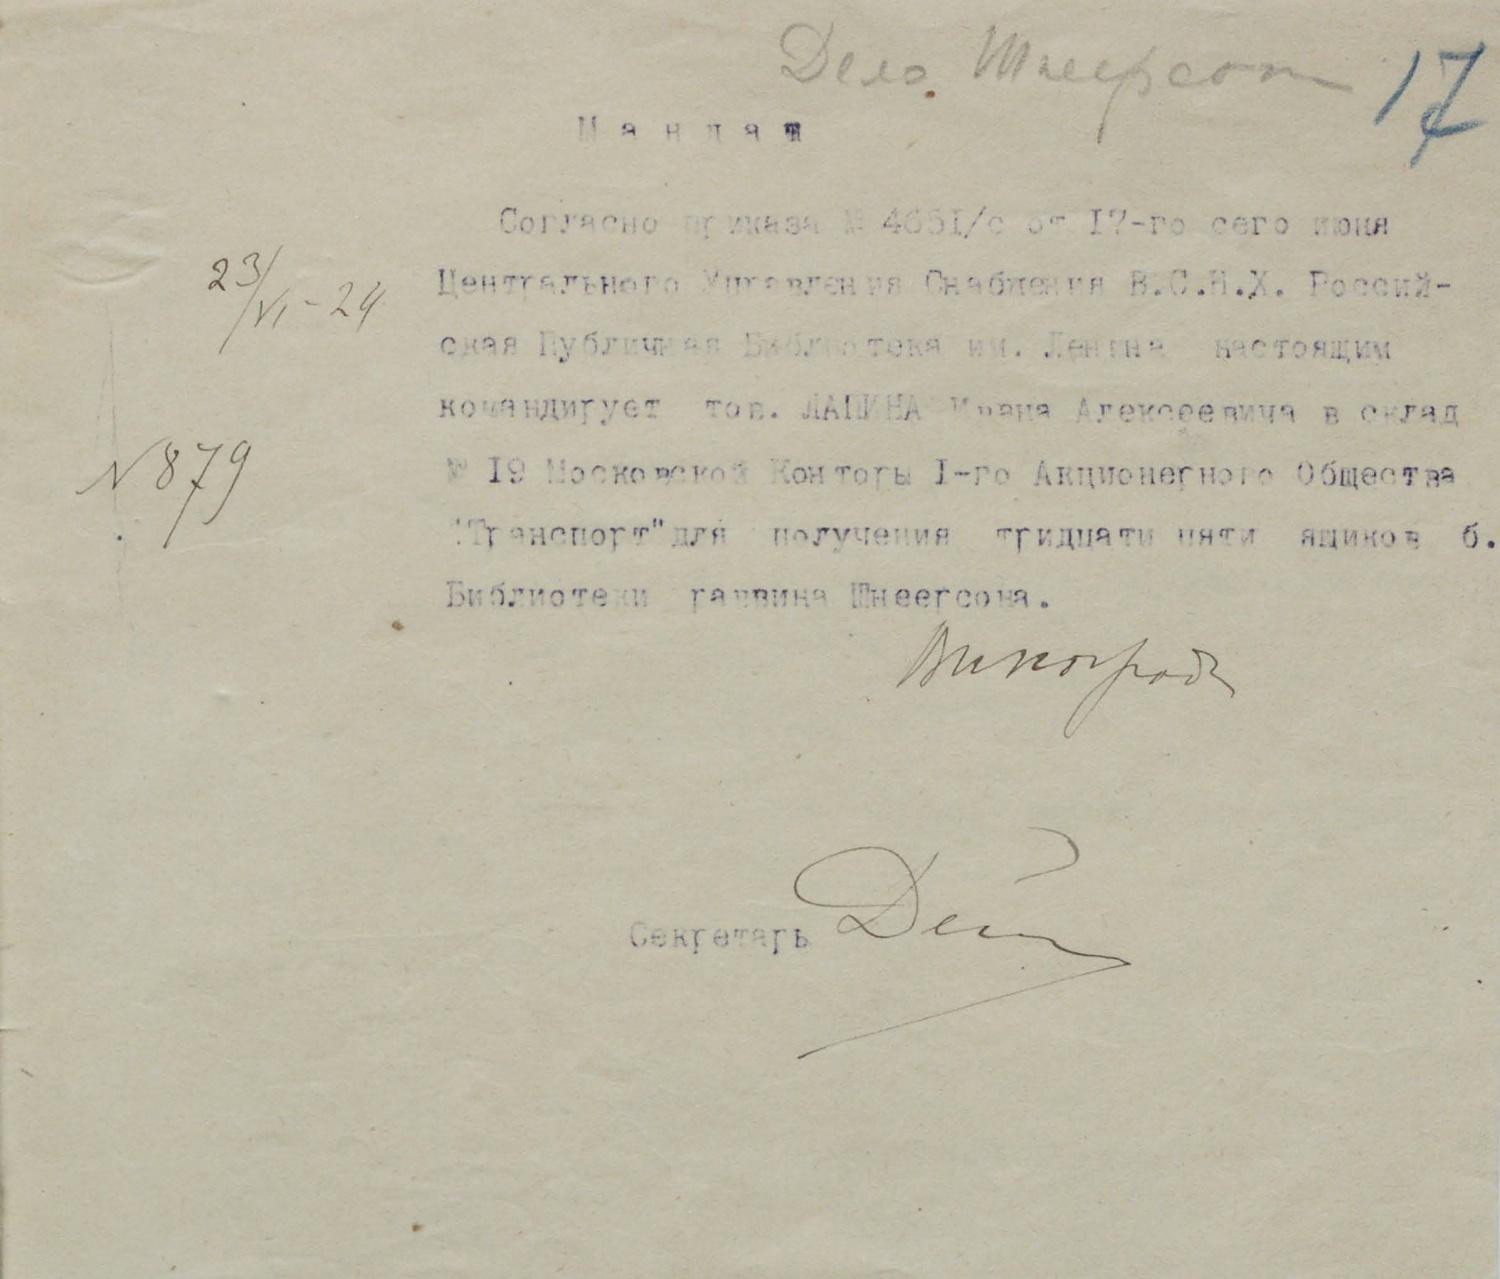 Дело Шнеерсон 17
Мандат
Согласно приказа № 4651/с от 17-го сего июня
23/VI-24
Центрального Управления Снабжения В.С.Н.Х. Россий-
ская Публичная Библиотека им. Ленина настоящим
командирует тов. ЛАПИНА Ивана Алексеевича в склад
№ 879
№ 19 Московской Конторы 1-го Акционерного Общества
"Транспорт" для получения тридцати пяти ящиков б.
Библиотеки раввина Шнеерсона.
Виноград
Секретарь